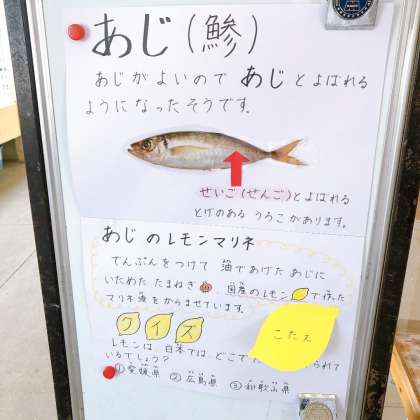 あじ(鯵)
あじがよいので あじ とよばれる
ようになったそうです。
せいご(ぜんご)とよばれる
とげのある うろこがあります。
あじ の レモンマリネ
でんぷんをつけて 油であげた あじに
いためた たまねぎ 国産のレモン で作った
マリネ液をからませています。
クイズ
こたえ
レモンは 日本では どこで られて
いるでしょう?
①愛媛県 ②広島県 ③和歌山県